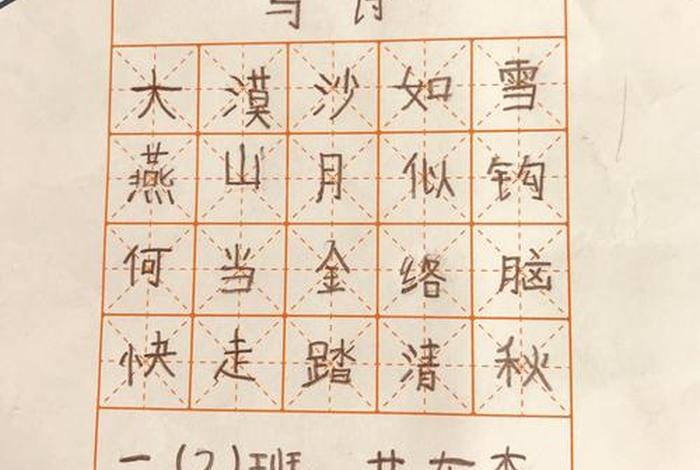 大漠沙如雪
燕山月似钩
何当金络脑
快走踏清秋
一(2)班